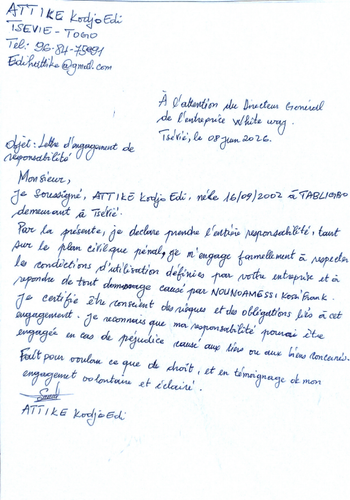 ATTIKE Kodjo Edi
TSEVIE - TOGO
Tél: 96-84-75991
Edihattike@gmail.com
À l'attention du Directeur Général
de l'entreprise White way.
Tsévié, le 08 juin 2026.
Objet: Lettre d'engagement de
responsabilité
Monsieur,
Je soussigné, ATTIKE Kodjo Edi, né le 16/09/2002 à TABLIGBO
demeurant à Tsévié.
Par la présente, je déclare prendre l'entière responsabilité, tant
sur le plan civil que pénal, je m'engage formellement à respecter
les conditions d'utilisation définies par votre entreprise et à
repondre de tout dommage causé par NOUNOAMESSI Kossi Frank.
Je certifie être conscient des risques et des obligations liés à cet
engagement. Je reconnais que ma responsabilité pourrait être
engagée en cas de préjudice causé aux lieu ou aux biens concernés.
Fait pour valoir ce que de droit, et en témoignage de mon
engagement volontaire et éclairé.
ATTIKE Kodjo Edi